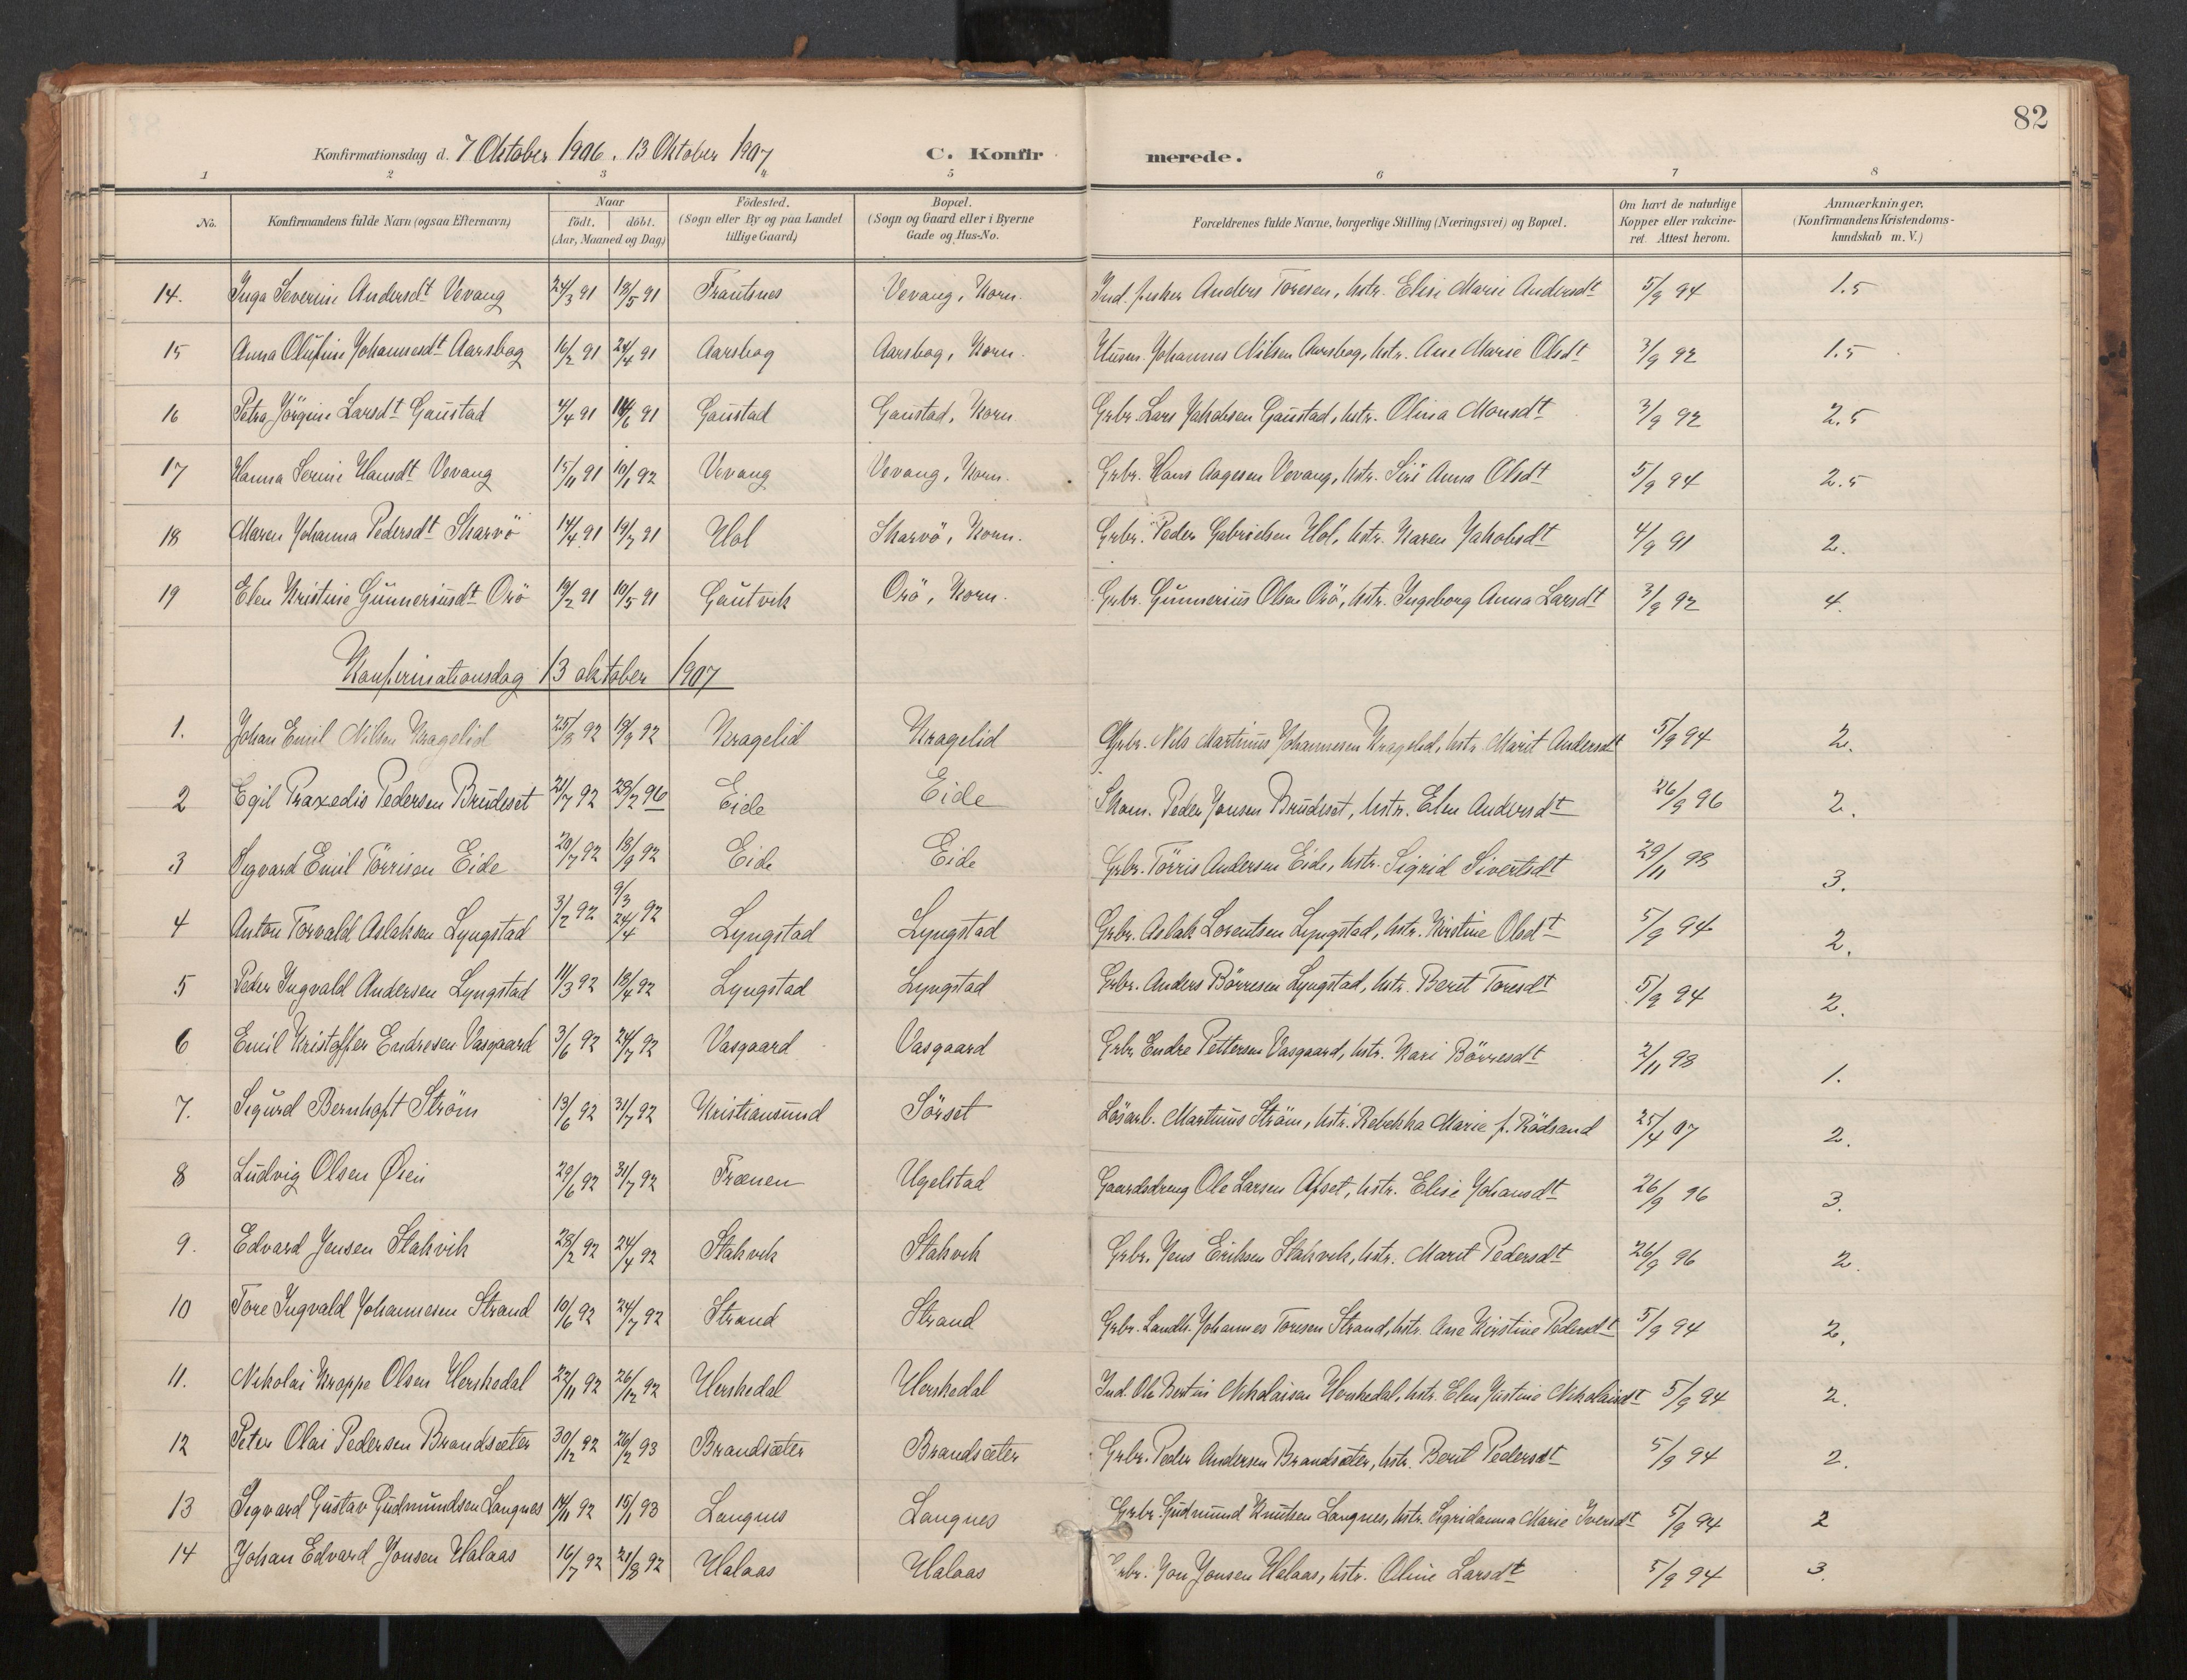 82
Konfirmationsdag d. 7 Oktober 1906. 13 Oktober 1907 C. Konfirmerede.
1 2 3 4 5 6 7 8
No. Konfirmandens fulde Navn (ogsaa Efternavn) Naar födt. döbt. (Aar, Maaned og Dag) Födested. (Sogn eller By og paa Landet tillige Gaard) Bopæl. (Sogn og Gaard eller i Byerne Gade og Hus-No. Forældrenes fulde Navne, borgerlige Stilling (Næringsvei) og Bopæl. Om havt de naturlige Kopper eller vakcineret. Attest herom. Anmærkninger, (Konfirmandens Kristendomskundskab m. V.)
14. Inga Severine Andersdt Vevang 24/3 91 18/5 91 Frantsnes Vevang, Korn. Ind. fisker Anders Toresen, hstr. Elise Marie Andersdt 5/9 94 1.5
15 Anna Olufine Johannesdt Aarsbog 16/2 91 24/4 91 Aarsbog Aarsbog, Korn. Husm. Johannes Nilsen Aarsbog, hstr. Ane Marie Olsdt 3/9 92 1.5
16 Petra Jörgine Larsdt Gaustad 4/4 91 14/6 91 Gaustad Gaustad, Korn Grbr. Lars Jakobsen Gaustad, hstr. Olina Monsdt 3/9 92 2.5
17 Hanna Serine Hansdt Vevang 15/11 91 10/1 92 Vevang Vevang, Korn. Grbr. Hans Aagesen Vevang, hstr. Siri Anna Olsdt 5/9 94 2.5
18 Maren Johanna Pedersdt Skarvö 14/4 91 19/7 91 Hol Skarvö, Korn. Grbr. Peder Gabrielsen Hol, hstr. Karen Jakobsdt 4/9 91 2.
19 Elen Kristine Gunneriusdt Orö 19/2 91 10/5 91 Gautvik Orö, Korn. Grbr. Gunnerius Olsen Orö, hstr. Ingeborg Anna Larsdt 3/9 92 4.
Konfirmationsdag 13 oktober 1907
1. Johan Emil Nilsen Kragelid 25/8 92 19/9 92 Kragelid Kragelid Grbr. Nils Martinus Johannesen Kragelid, hstr. Marit Andersdt 5/9 94 2.
2 Egil Praxedis Pedersen Brudeset 21/7 92 28/2 96 Eide Eide Skom. Peder Jonsen Brudeset, hstr. Elen Andersdt 26/9 96 2.
3 Sigvard Emil Törrisen Eide 20/7 92 18/9 92 Eide Eide Grbr. Törris Andersen Eide, hstr. Sigrid Sivertsdt 29/11 98 3.
4 Anton Torvald Aslaksen Lyngstad 3/2 92 9/3 24/4 92 Lyngstad Lyngstad Grbr. Aslak Lorentsen Lyngstad, hstr. Kirstine Olsdt 5/9 94 2.
5 Peder Ingvald Andersen Lyngstad 11/3 92 18/4 92 Lyngstad Lyngstad Grbr. Anders Börresen Lyngstad, hstr. Berit Toresdt 5/9 94 2.
6 Emil Kristoffer Endresen Vasgaard 3/6 92 24/7 92 Vasgaard Vasgaard Grbr Endre Pettersen Vasgaard, hstr. Kari Börresdt 2/11 98 1.
7. Sigurd Bernhoft Ström 13/6 92 31/7 92 Kristiansund Sörset Lösarb. Martinus Ström, hstr. Rebekka Marie f. Rödsand 25/4 07 2.
8 Ludvig Olsen Øien 29/6 92 31/7 92 Frænen Ugelstad Gaardsdreng Ole Larsen Afset, hstr. Elise Johansdt 26/9 96 3.
9. Edvard Jensen Stakvik 28/2 92 24/4 92 Stakvik Stakvik Grbr. Jens Eriksen Stakvik, hstr. Marit Pedersdt 26/9 96 2.
10 Tore Ingvald Johannesen Strand 10/6 92 24/7 92 Strand Strand Grbr. Landh. Johannes Toresen Strand, hstr. Ane Kirstine Pedersdt 5/9 94 2.
11. Nikolai Kroppe Olsen Herskedal 22/11 92 26/12 92 Herskedal Herskedal Ind. Ole Bertin Nikolaisen Herskedal, hstr. Elen Justine Nikolaisdt 5/9 94 2.
12 Peter Olai Pedersen Brandsæter 30/12 92 26/2 93 Brandsæter Brandsæter Grbr. Peder Andersen Brandsæter, hstr. Berit Pedersdt 5/9 94 2.
13 Sigvard Gustav Gudmundsen Langnes 14/11 92 15/1 93 Langnes Langnes Grbr. Gudmund Knutsen Langnes, hstr. Sigridanna Marie Iversdt 5/9 94 2
14 Johan Edvard Jonsen Halaas 16/7 92 21/8 92 Halaas Halaas Grbr. Jon Jonsen Halaas, hstr. Oline Larsdt 5/9 94 3.